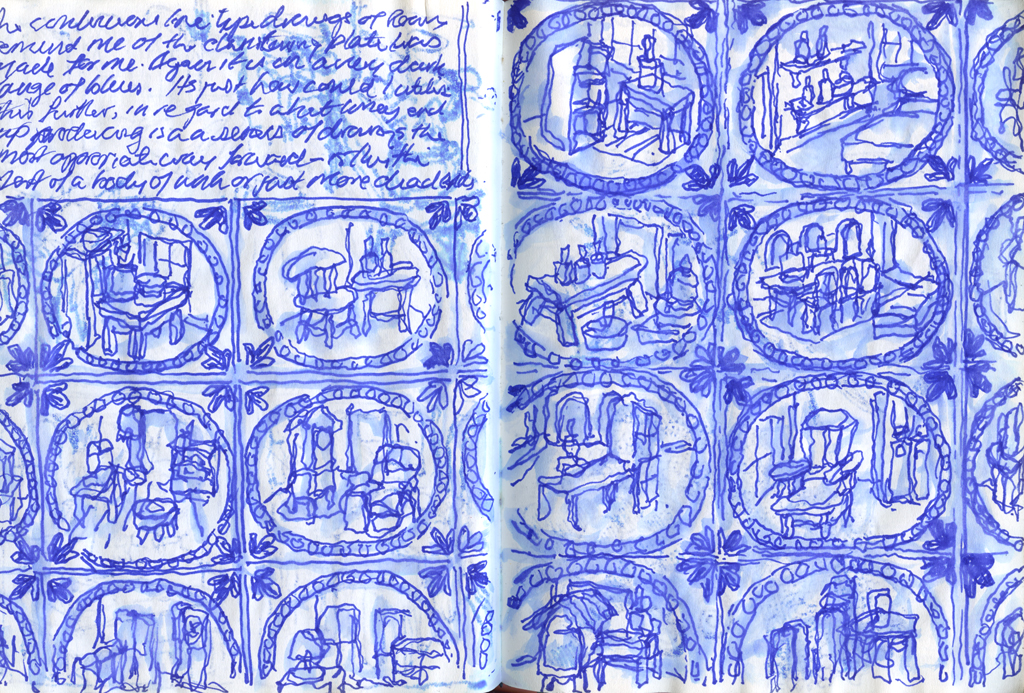 continuous line type drawings of Rooms
remind me of the christening plate was
made for me. Again it is in a very dark
range of blues. It's just how could I utilise
this further, in regard to
up producing is a a series of drawings the
most appropriate way forward – with the
start of a body of work or just more dead ends